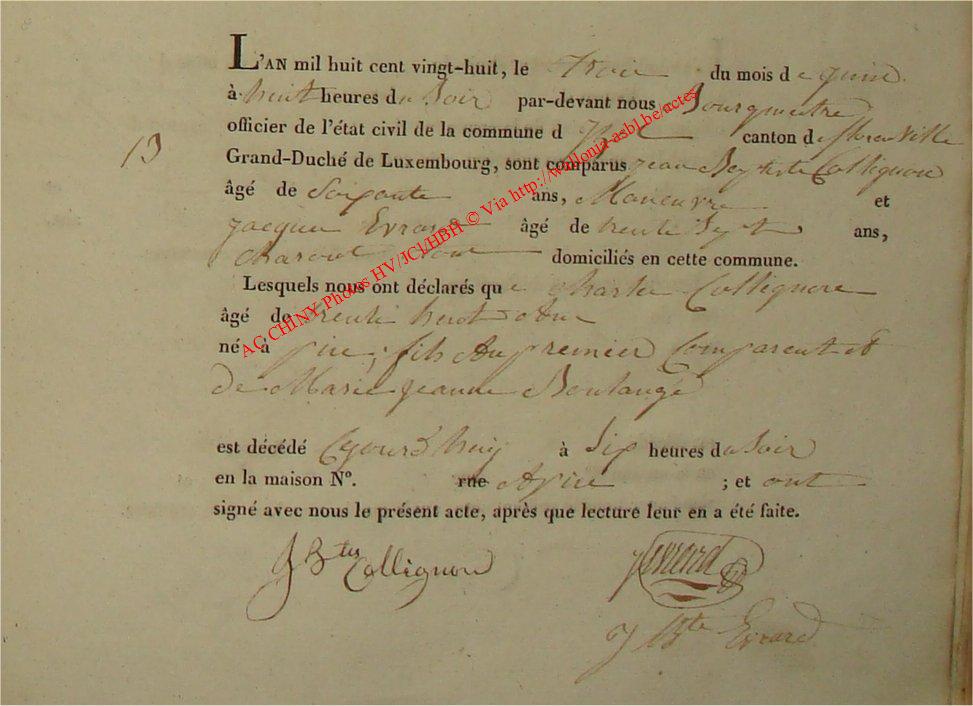 L'AN mil huit cent vingt-huit, le trois du mois de juin
à huit heures du Soir par-devant nous Bourgmestre
officier de l'état civil de la commune d canton de florenville
13
Grand-Duché de Luxembourg, sont comparus jean Baptiste Collignon
âgé de Soixante ans, Maneuvre et
jacques Evrard âgé de trente Sept ans,
domiciliés en cette commune.
Lesquels nous ont déclarés que charles Collignon
âgé de trente huit ans
né à fils du premier Comparent et
de Marie jeanne Boulangé
est décédé cejourd'huy à Six heures du Soir
en la maison No. rue ; et ont
signé avec nous le présent acte, après que lecture leur en a été faite.
J Bte Collignon
J Evrard
J Bte Evrard
AC CHINY Photos HV/JCl/HBH © Via http://wallonia-asbl.be/actes